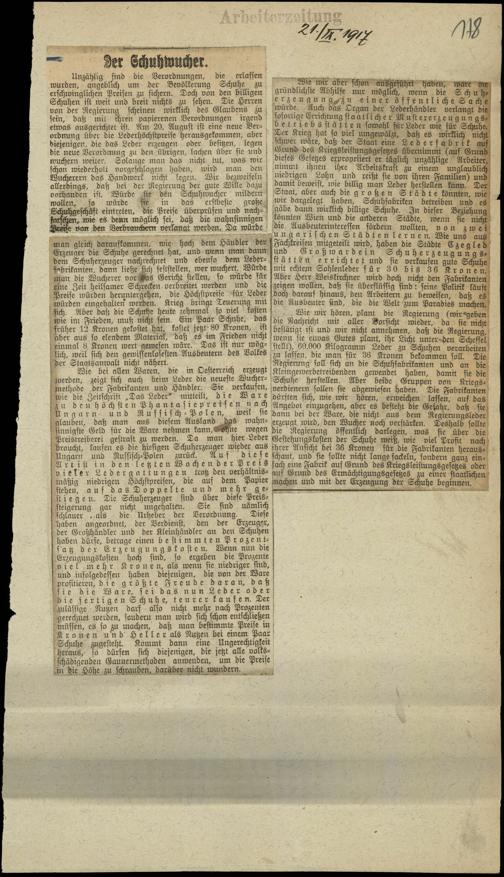 Arbeiterzeitung
21./IX. 1917
178
Der Schuhwucher.
Unzählig sind die Verordnungen, die erlassen
wurden, angeblich um der Bevölkerung Schuhe zu
erschwinglichen Preisen zu sichern. Doch von den billigen
Schuhen ist weit und breit nichts zu sehen. Die Herren
von der Regierung scheinen wirklich des Glaubens zu
sein, daß mit ihren papierenen Verordnungen irgend
etwas ausgerichtet ist. Am 20. August ist eine neue Ver-
ordnung über die Lederhöchstpreise herausgekommen, aber
diejenigen, die das Leder erzeugen oder besitzen, legen
die neue Verordnung zu den übrigen, lachen über sie und
wuchern weiter. Solange man das nicht tut, was wir
schon wiederholt vorgeschlagen haben, wird man den
Wucherern das Handwerk nicht legen. Wir bezweifeln
allerdings, daß bei der Regierung der gute Wille dazu
vorhanden ist. Würde sie den Schuhwucher mindern
wollen, so würde sie in das erstbeste große
Schuhgeschäft eintreten, die Preise überprüfen und nach-
forschen, wie es denn möglich sei, daß die wahnsinnigen
Preise von den Verbrauchern verlangt werden. Da würde
man gleich daraufkommen, wie hoch dem Händler der
Erzeuger die Schuhe gerechnet hat, und wenn man dann
dem Schuherzeuger nachrechnet und ebenso dem Leder-
fabrikanten, dann ließe sich feststellen, wer wuchert. Würde
man die Wucherer vor das Gericht stellen, so würde für
eine Zeit heilsamer Schrecken verbreitet werden und die
Preise würden heruntergehen, die Höchstpreise für Leder
würden eingehalten werden. Krieg bringt Teuerung mit
sich. Aber daß die Schuhe heute zehnmal so viel kosten
wie im Frieden, muß nicht sein. Ein Paar Schuhe, das
früher 12 Kronen gekostet hat, kostet jetzt 80 Kronen, ist
aber aus so elendem Material, daß es im Frieden nicht
einmal 8 Kronen wert gewesen wäre. Das ist nur mög-
lich, weil sich den gewissenlosesten Ausbeutern des Volkes
der Staatsanwalt nicht nähert.
Wie bei allen Waren, die in Oesterreich erzeugt
werden, zeigt sich auch beim Leder die neueste Wucher-
methode der Fabrikanten und Händler. Sie verkaufen,
wie die Zeitschrift „Das Leder" mitteilt, die Ware
zu den höchsten Phantasiepreisen nach
Ungarn und Russisch-Polen, weil sie
glauben, daß man aus diesem Ausland das wahn-
sinnigste Geld für die Ware nehmen kann, ohne wegen
Preistreiberei gestraft zu werden. Da man hier Leder
braucht, kaufen es die hiesigen Schuherzeuger wieder aus
Ungarn und Russisch-Polen zurück. Auf diese
Art ist in den letzten Wochen der Preis
vieler Ledergattungen trotz den verhältnis-
mäßig niedrigen Höchstpreisen, die auf dem Papier
stehen, auf das Doppelte und mehr ge-
stiegen. Die Schuherzeuger sind über diese Preis-
steigerung gar nicht ungehalten. Sie sind nämlich
schlauer als die Urheber der Verordnung. Diese
haben angeordnet, der Verdienst, den der Erzeuger,
der Großhändler und der Kleinhändler an den Schuhen
haben dürfe, betrage einen bestimmten Prozent-
satz der Erzeugungskosten. Wenn nun die
Erzeugungskosten hoch sind, so ergeben die Prozente
viel mehr Kronen, als wenn sie niedriger sind,
und infolgedessen haben diejenigen, die von der Ware
profitieren, die größte Freude daran, daß
sie die Ware, sei das nun Leder oder
die fertigen Schuhe, teurer kaufen. Der
zulässige Nutzen darf also nicht mehr nach Prozenten
gerechnet werden, sondern man wird sich schon entschließen
müssen, es so zu machen, daß man bestimmte Preise in
Kronen und Heller als Nutzen bei einem Paar
Schuhe zugesteht. Kommt dann eine Ungerechtigkeit
heraus, so dürfen sich diejenigen, die jetzt alle volks-
schädigenden Gaunermethoden anwenden, um die Preise
in die Höhe zu schrauben, darüber nicht wundern.
Wie wir aber schon ausgeführt haben, wäre die
gründlichste Abhilfe nur möglich, wenn die Schuh-
erzeugung zu einer öffentliche Sache
würde. Auch das Organ der Lederhändler verlangt die
sofortige Errichtung staatlicher Mustererzeugungs-
betriebsstätten sowohl für Leder wie für Schuhe.
Der Krieg hat so viel umgewälzt, daß es wirklich nicht
schwer wäre, daß der Staat eine Lederfabrik auf
Grund des Kriegsleistungsgesetzes übernimmt (auf Grund
dieses Gesetzes expropriiert er täglich unzählige Arbeiter,
nimmt ihnen ihre Arbeitskraft zu einem unglaublich
niedrigen Lohn und reißt sie von ihren Familien) und
damit beweist, wie billig man Leder herstellen kann. Der
Staat, aber auch die großen Städte könnten, wie
wir dargelegt haben, Schuhfabriken betreiben und es
gäbe dann wirklich billige Schuhe. In dieser Beziehung
könnten Wien und die anderen Städte, wenn sie nicht
die Ausbeuterinteressen fördern wollen, von zwei
ungarischen Städten lernen. Wie uns aus
Fachkreisen mitgeteilt wird, haben die Städte Czegled
und Großwardein Schuherzeugungs-
stätten errichtet und sie verkaufen gute Schuhe
mit echten Sohlenleder für 30 bis 36 Kronen.
Aber Herr Weiskirchner wird doch nicht den Fabrikanten
zeigen wollen, daß sie überflüssig sind: seine Politik läuft
doch darauf hinaus, den Arbeitern zu beweisen, daß es
die Ausbeuter sind, die die Welt zum Paradies machen.
Wie wir hören, plant die Regierung (wir geben
die Nachricht mit aller Vorsicht wieder, da sie nicht
bestätigt ist und wir nicht annehmen, daß die Regierung,
wenn sie etwas Gutes plant, ihr Licht unter den Scheffel
stellt), 60.000 Kilogramm Leder zu Schuhen verarbeiten
zu lassen, die man für 36 Kronen bekommen soll. Die
Regierung soll sich an die Schuhfabrikanten und an die
Kleingewerbetreibenden gewendet haben, damit sie die
Schuhe herstellen. Aber beide Gruppen von Kriegs-
verdienern sollen sie abgewiesen haben. Die Fabrikanten
dürften sich, wie wir hören, erweichen lassen, auf das
Angebot einzugehen, aber es besteht die Gefahr, daß sie
dann bei der Ware, die nicht aus dem Regierungsleder
erzeugt wird, den Wucher noch verstärken. Deshalb sollte
die Regierung öffentlich darlegen, was sie über die
Gestehungskosten der Schuhe weiß, wie viel Profit nach
ihrer Ansicht bei 36 Kronen für die Fabrikanten heraus-
schaut, und sie sollte nicht lange fackeln, sondern ganz ein-
fach eine Fabrik auf Grund des Kriegsleistungsgesetzes oder
auf Grund des Ermächtigungsgesetzes zu einer staatlichen
machen und mit der Erzeugung der Schuhe beginnen.